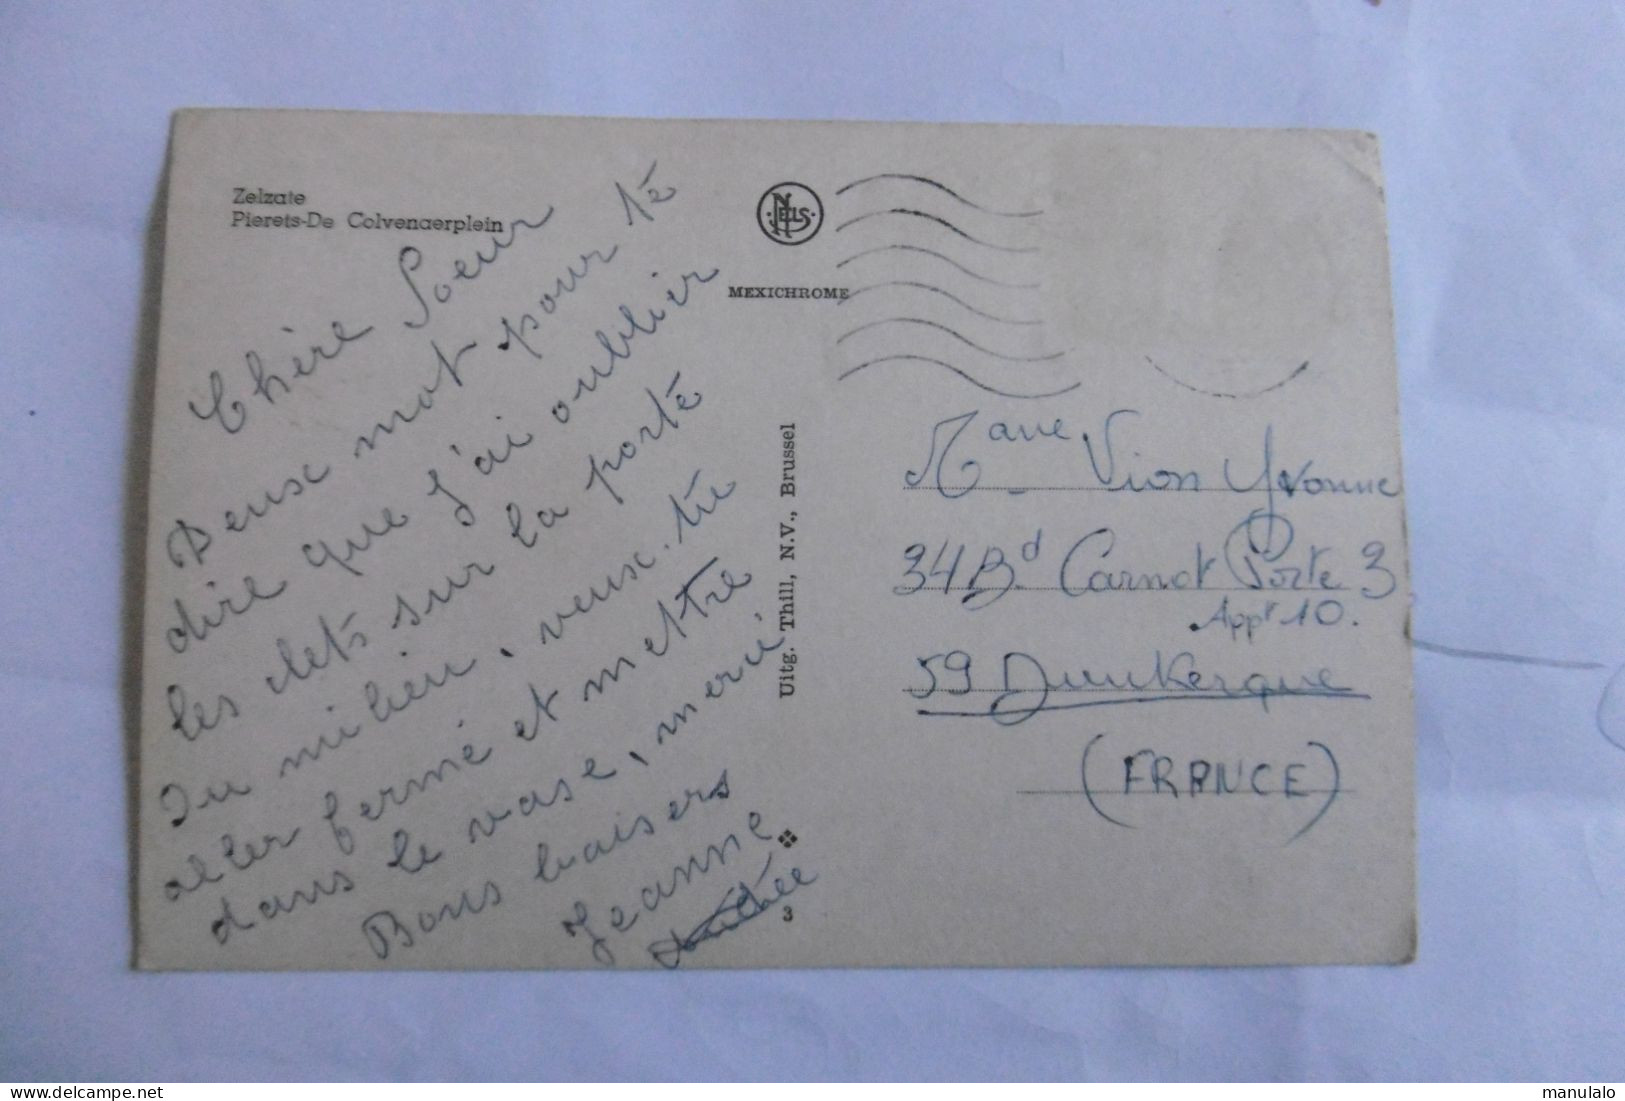 Zelzate
Pierets-De Colvenaerplein
NELS
MEXICHROME
Chère Soeur
Deusc mot pour té
dire que j'ai oublier
les clets sur la porté
du milieu, veusc-tu
aller fermé et mettre
dans le vase, merci
Bons baisers
Jeanne
Uitg. Thill, N.V., Brussel
3
Mame Vion Yvonne
34 Bd Carnot Porte 3
Appt 10.
59 Dunkerque
(FRANCE)
manulalo